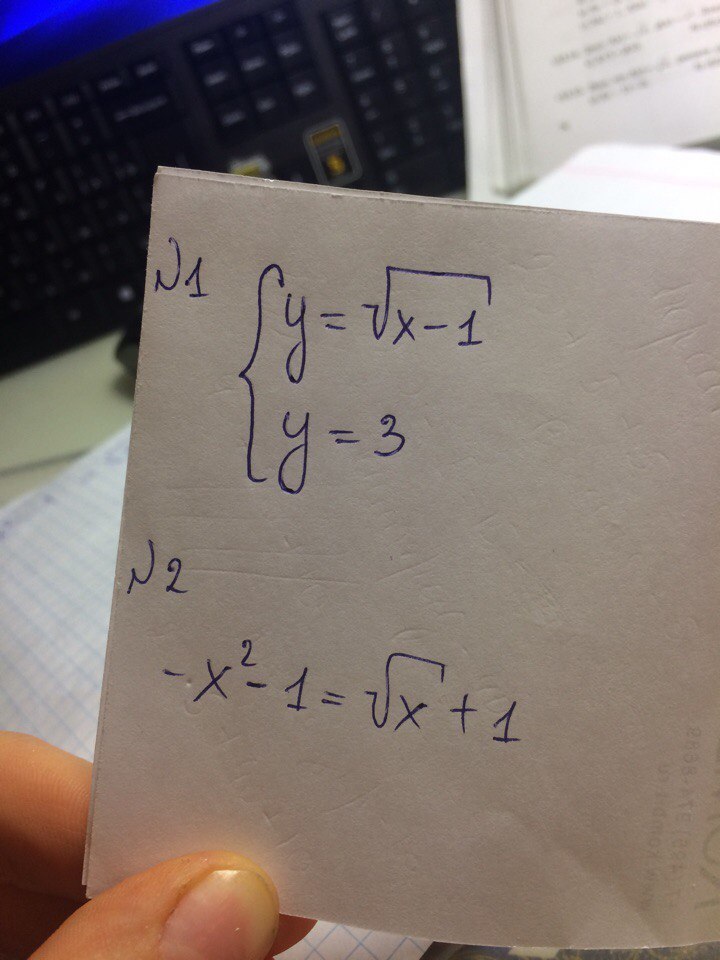 N1
{ y = √(x-1)
y = 3
N2
-x² - 1 = √x + 1